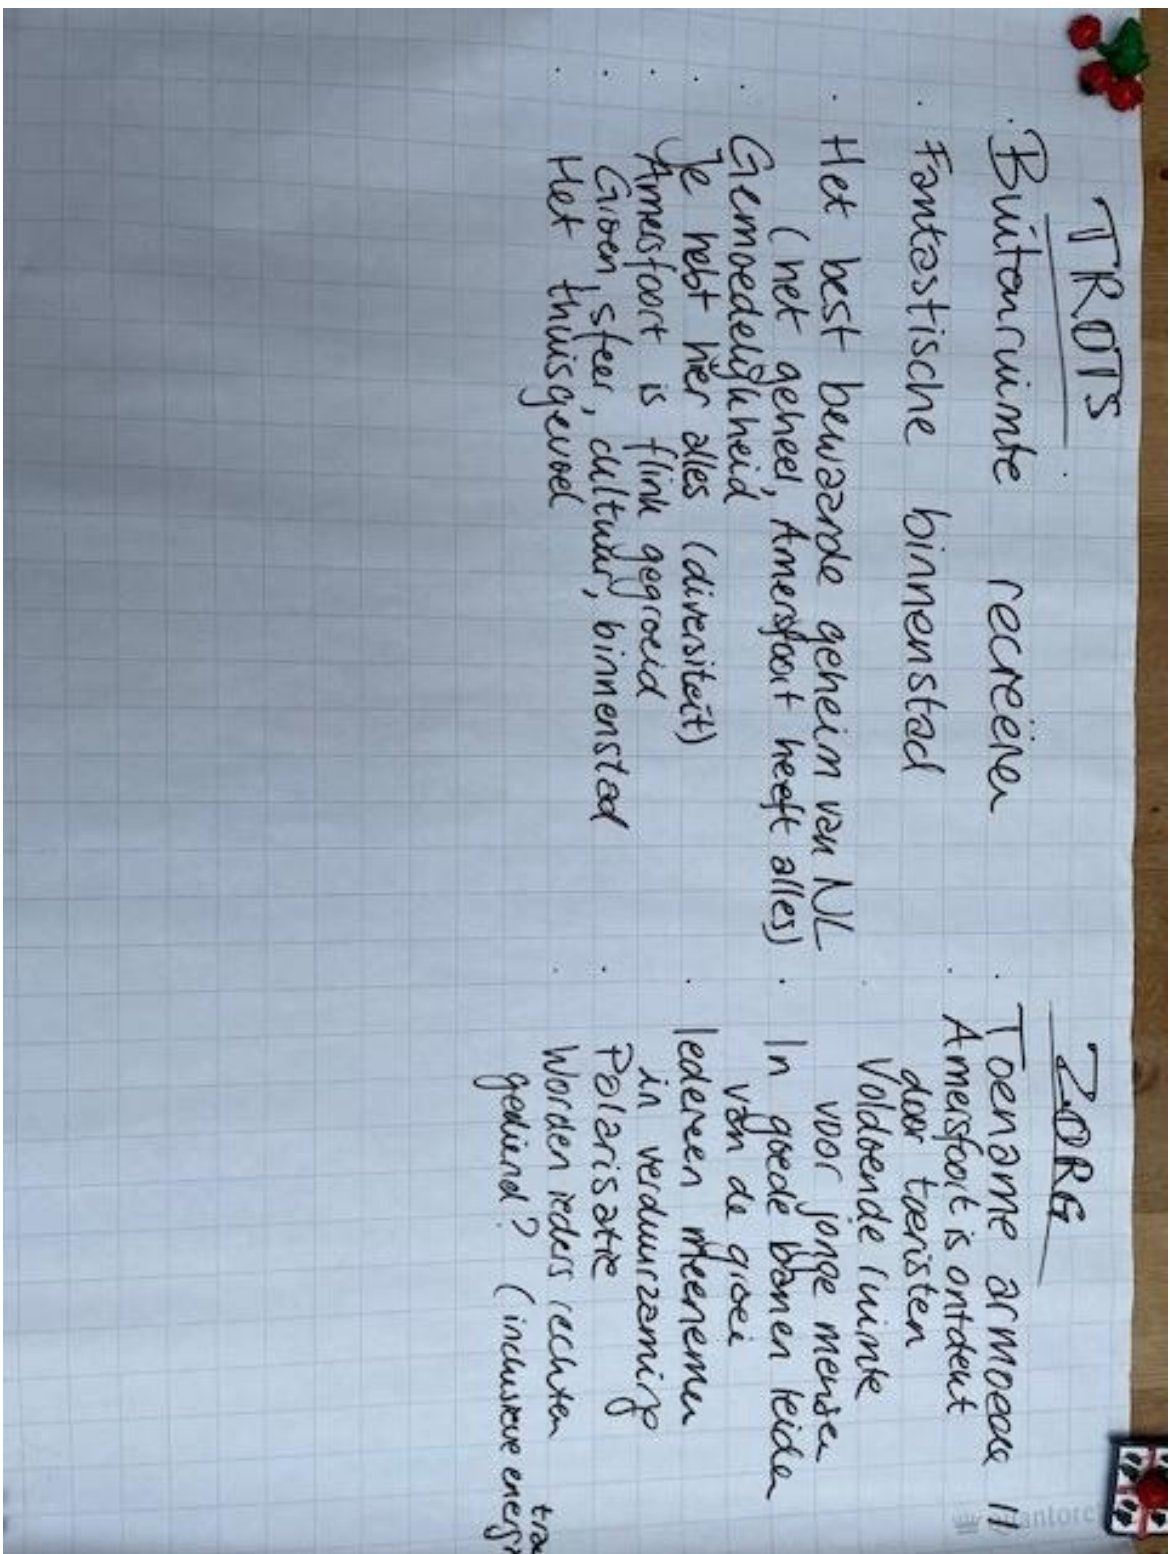 TROTS
· Buitenruimte recreëren
· Fantastische binnenstad
· Het best bewaarde geheim van NL
(het geheel, Amersfoort heeft alles)
· Gemoedelijkheid
· Je hebt hier alles (diversiteit)
· Amersfoort is flink gegroeid
· Groen, sfeer, cultuur, binnenstad
· Het thuisgevoel
ZORG
· Toename armoede II
· Amersfoort is ontdekt
door toeristen
· Voldoende ruimte
voor jonge mensen
· In goede banen leiden
van de groei
· Iedereen meenemen
in verduurzaming
· Polarisatie
· Worden ieders rechten
gediend? (inclusieve energi
tra